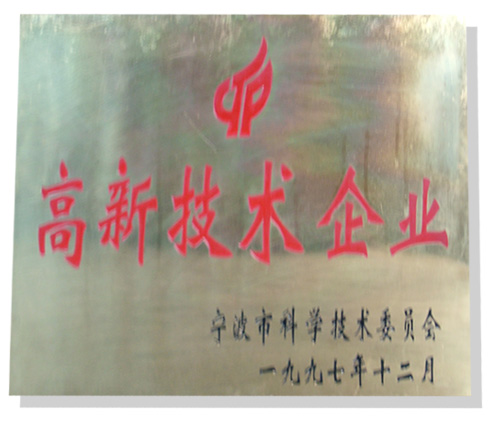 高新技术企业
宁波市科学技术委员会
一九九七年十二月